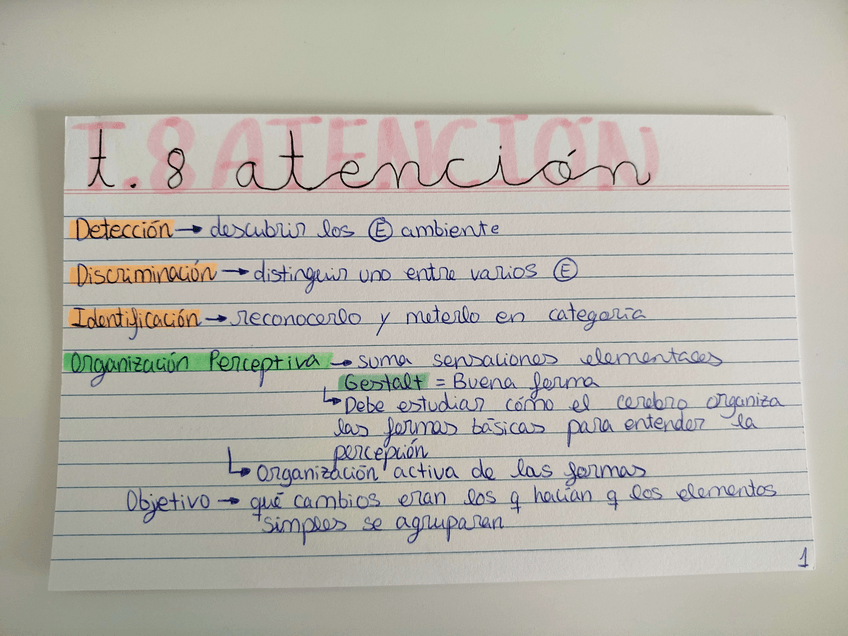 T.8 ATENCIÓN
t. 8 atención
Detección → descubrir los Ⓔ ambiente
Discriminación → distinguir uno entre varios Ⓔ
Identificación → reconocerlo y meterlo en categoría
Organización Perceptiva → suma sensaciones elementales
Gestalt = Buena forma
↳ Debe estudiar cómo el cerebro organiza
las formas básicas para entender la
percepción
↳ Organización activa de las formas
Objetivo → qué cambios eran los q hacían q los elementos
+simples se agruparan
1